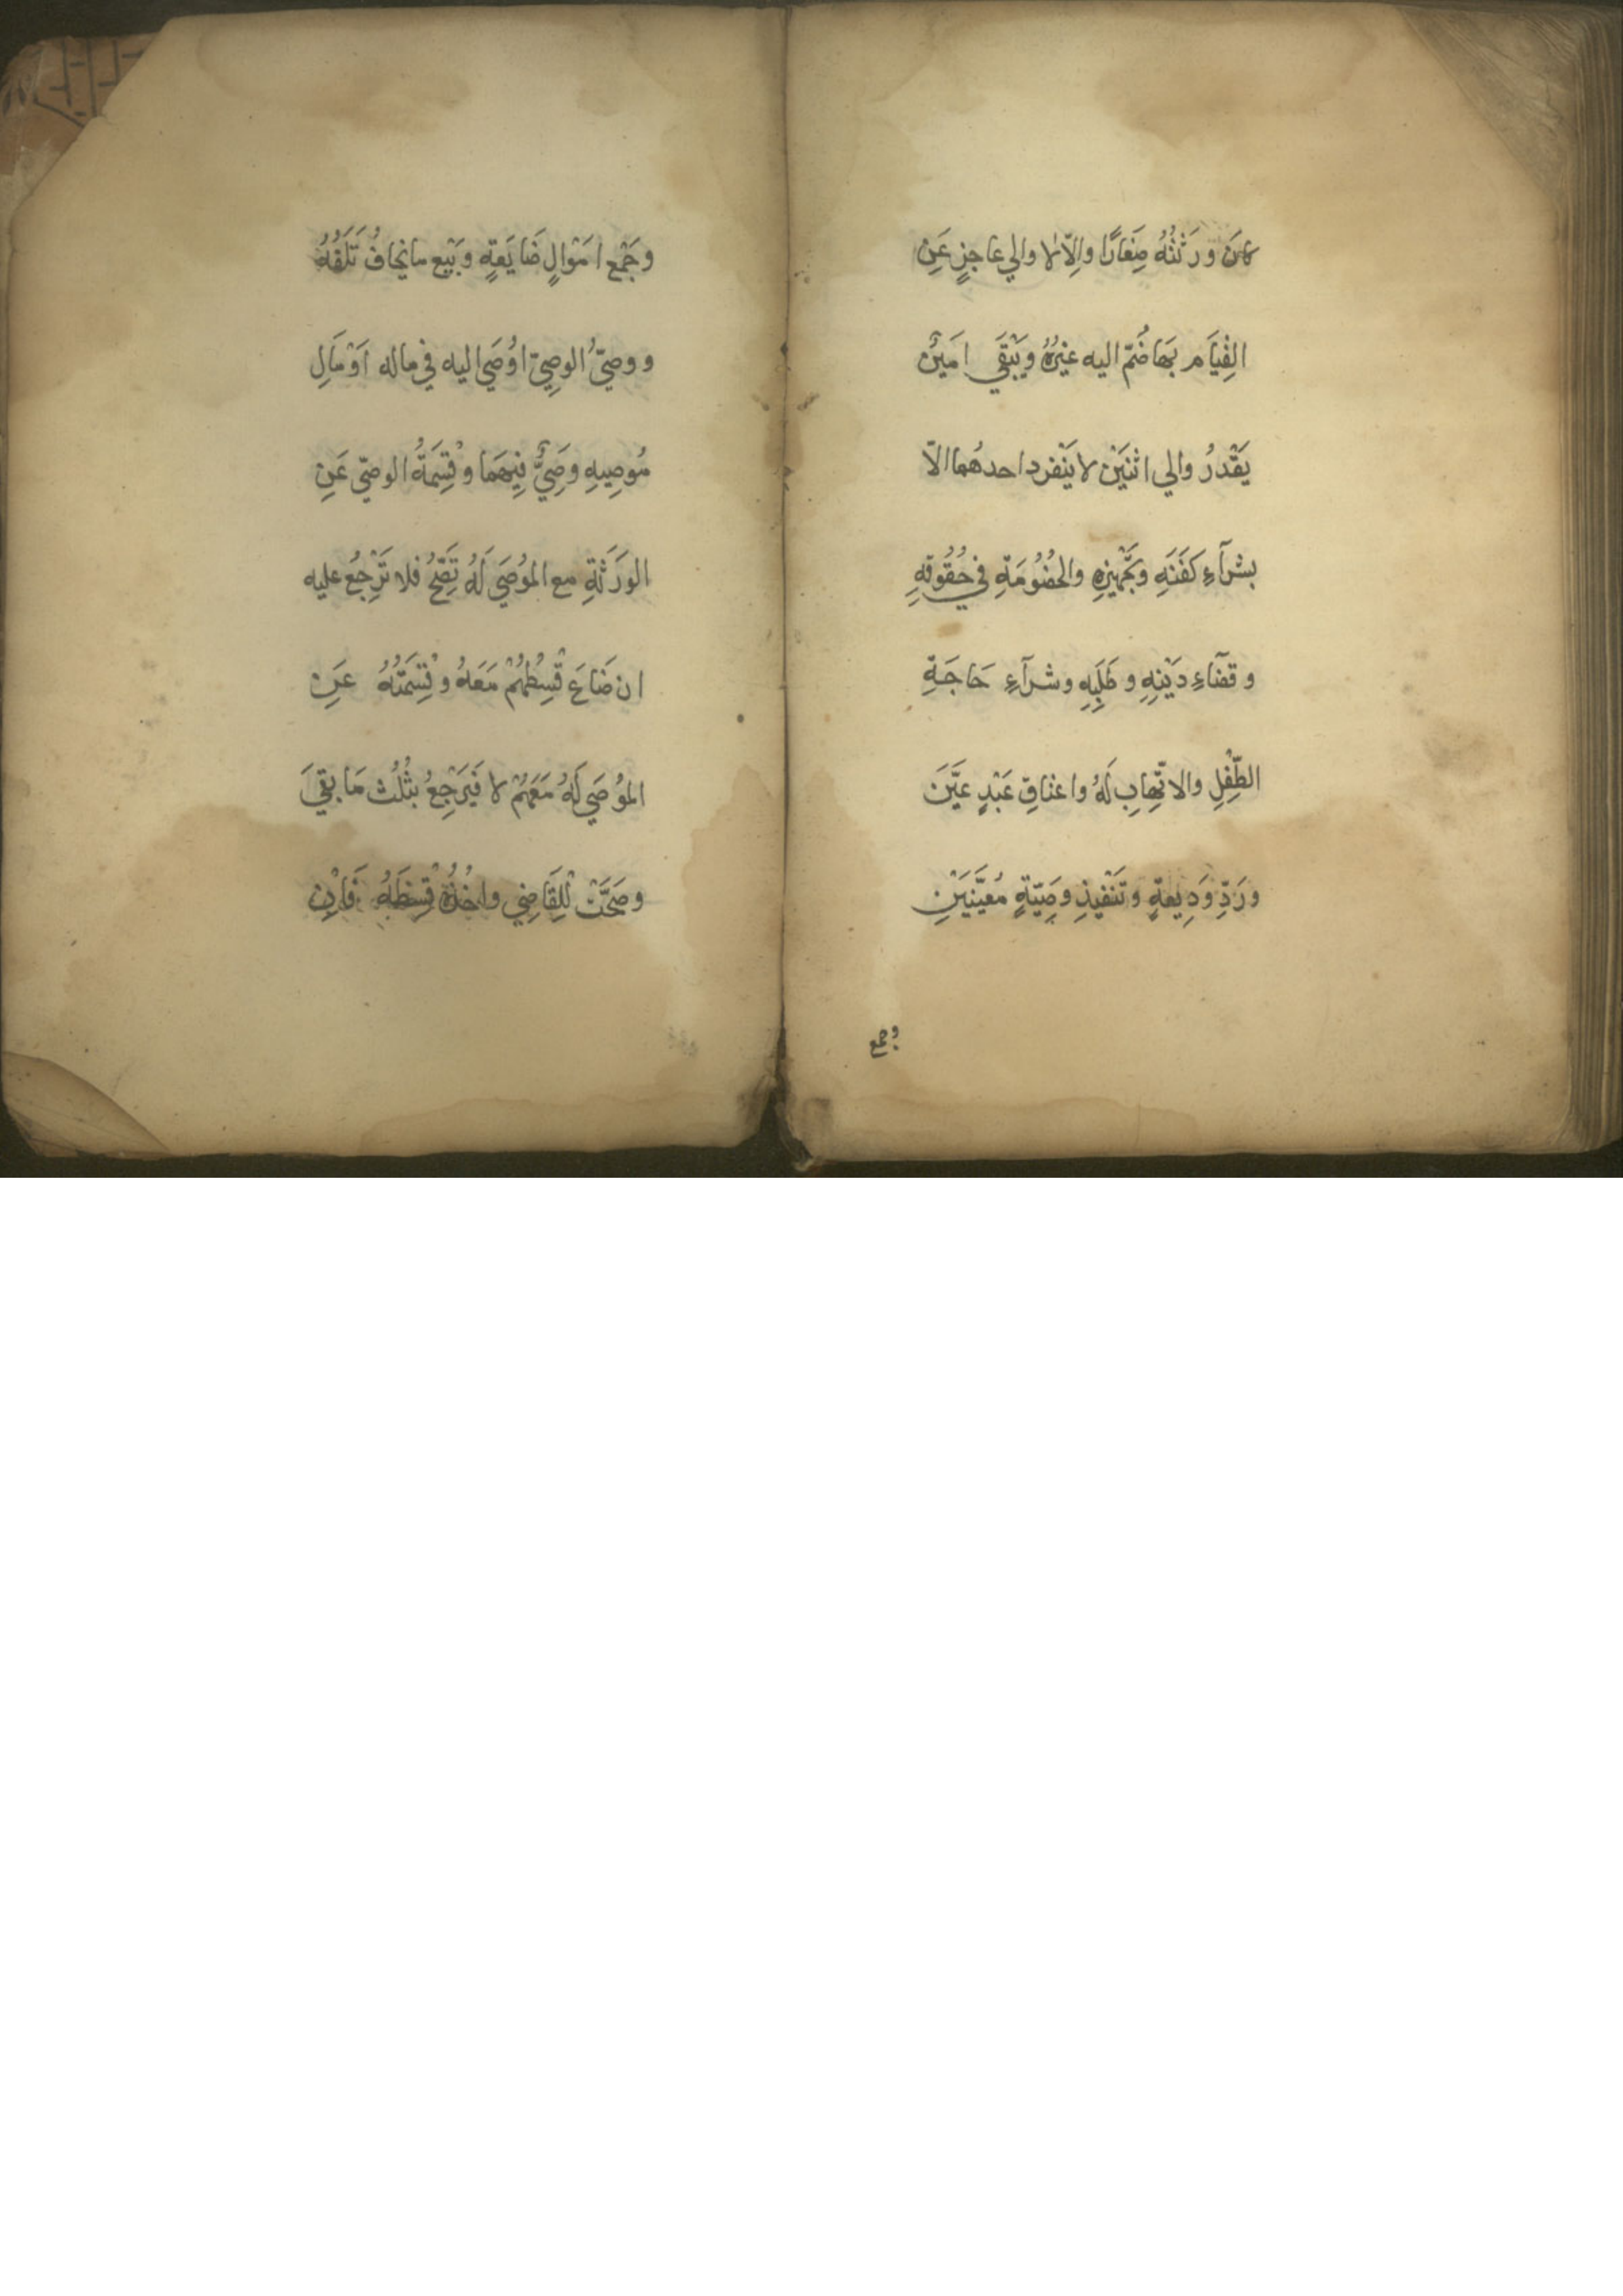 كانَ وَرَثَتُهُ صِغَارًا والّا لا والي عاجزٍ عَنِ
القِيَام بهَا ضُمّ اليه غيْرُهُ ويَبْقَى امَينٌ
يَقْدرُ والي اثنَيْن لا يَنْفرد احدهُما الّا
بشرآءِ كَفَنَهِ وتَجْهِيزِهِ والخصُومَةِ في حُقُوقهِ
وقضآءِ دَيْنِهِ وطَلَبِهِ وشرآءِ حَاجَةِ
الطِّفْلِ والاتّهابِ لَهُ واعتاقِ عَبْدٍ عيَّنَ
ورَدِّ وَدِيعةٍ وتَنْفيذِ وصِيّةٍ مُعيَّنَيَنِ
وجمع
وجَمْع امَوْالٍ ضَايَعةٍ وبَيْع ما يخافُ تَلَفُهُ
ووصيّ الوصِيّ اوُصَي اليه في ماله اَوْ مَالِ
مُوصِيهِ وصَيٌّ فِيهَما وقِسْمَةُ الوصيّ عَنِ
الورَثَةِ مع الموُصَي لَهُ تَصِحُّ فلا تَرْجعُ عليه
ان ضَاعَ قِسْطُهُمْ مَعَهُ وقِسْمَتُهُ عَنِ
الموُصَي لَهُ مَعَهُمْ لا فَيَرْجِعُ بثُلُث مَا بقيَ
وصَحَّتْ للِقَاضِي واخْذُهُ قِسْطَهُ فَاِنْ